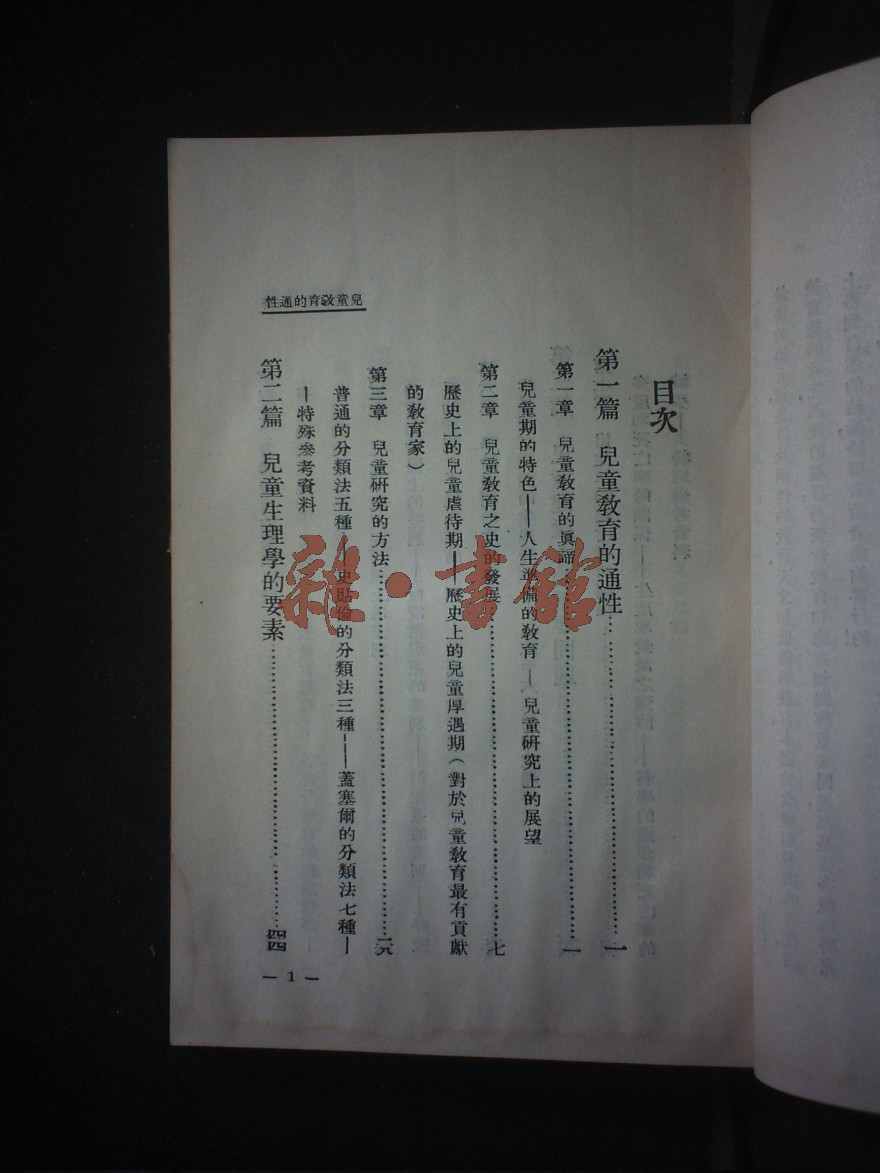 兒童敎育的通性
目次
第一篇 兒童敎育的通性……………………一
第一章 兒童敎育的眞諦……………………一
兒童期的特色——人生準備的敎育——兒童硏究上的展望
第二章 兒童敎育之史的發展……………………七
歷史上的兒童虐待期——歷史上的兒童厚遇期(對於兒童敎育最有貢獻
的敎育家)
第三章 兒童硏究的方法……………………
普通的分類法五種——史貼倫的分類法三種——蓋塞爾的分類法七種—
—特殊參考資料
第二篇 兒童生理學的要素……………………四四
— 1 —
雜·書館